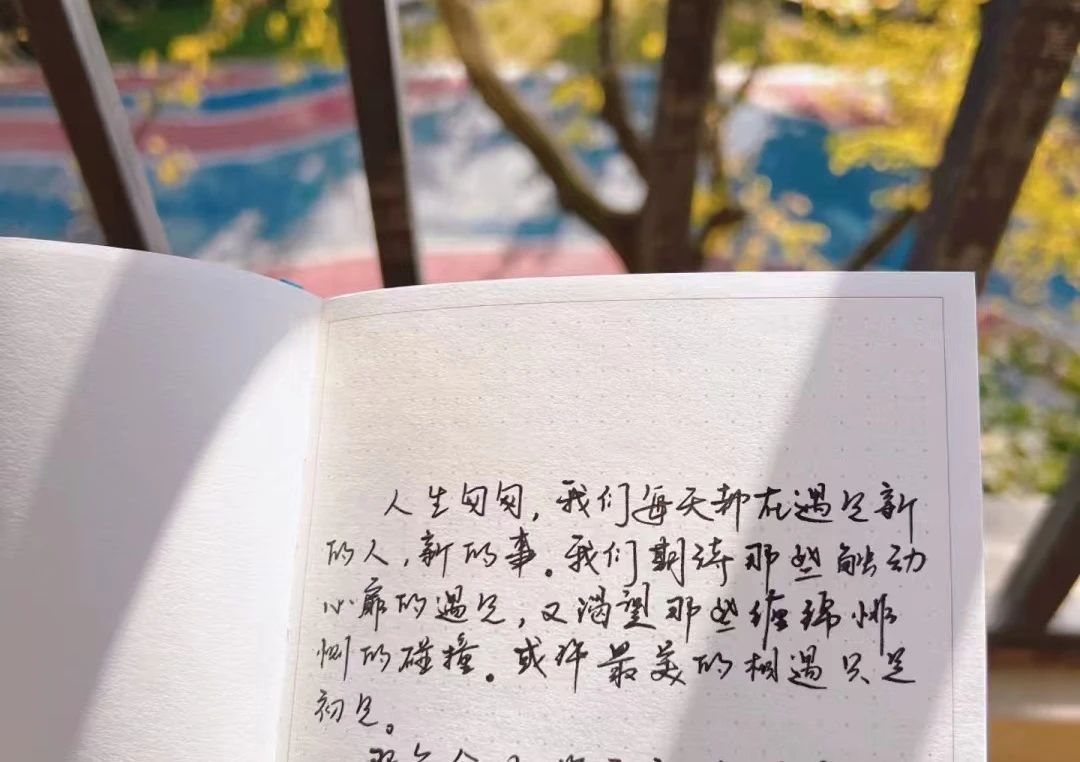 人生匆匆，我们每天都在遇见新
的人，新的事。我们期待那些触动
心扉的遇见，又渴望那些缠绵悱
恻的碰撞。或许最美的相遇只是
初见。